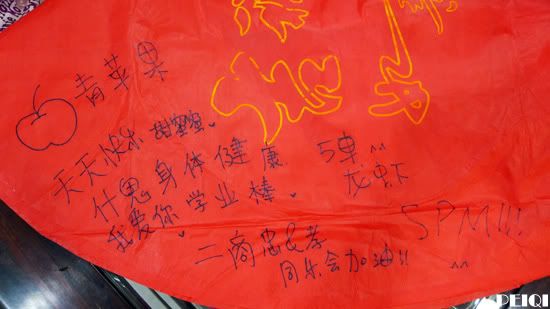 青苹果
天天快乐 甜蜜蜜。
什思身体健康
我爱你 学业棒
5单 ^^
龙虾
SPM!!!
^^
二商忠&孝
同乐会加油!!
PEIQI